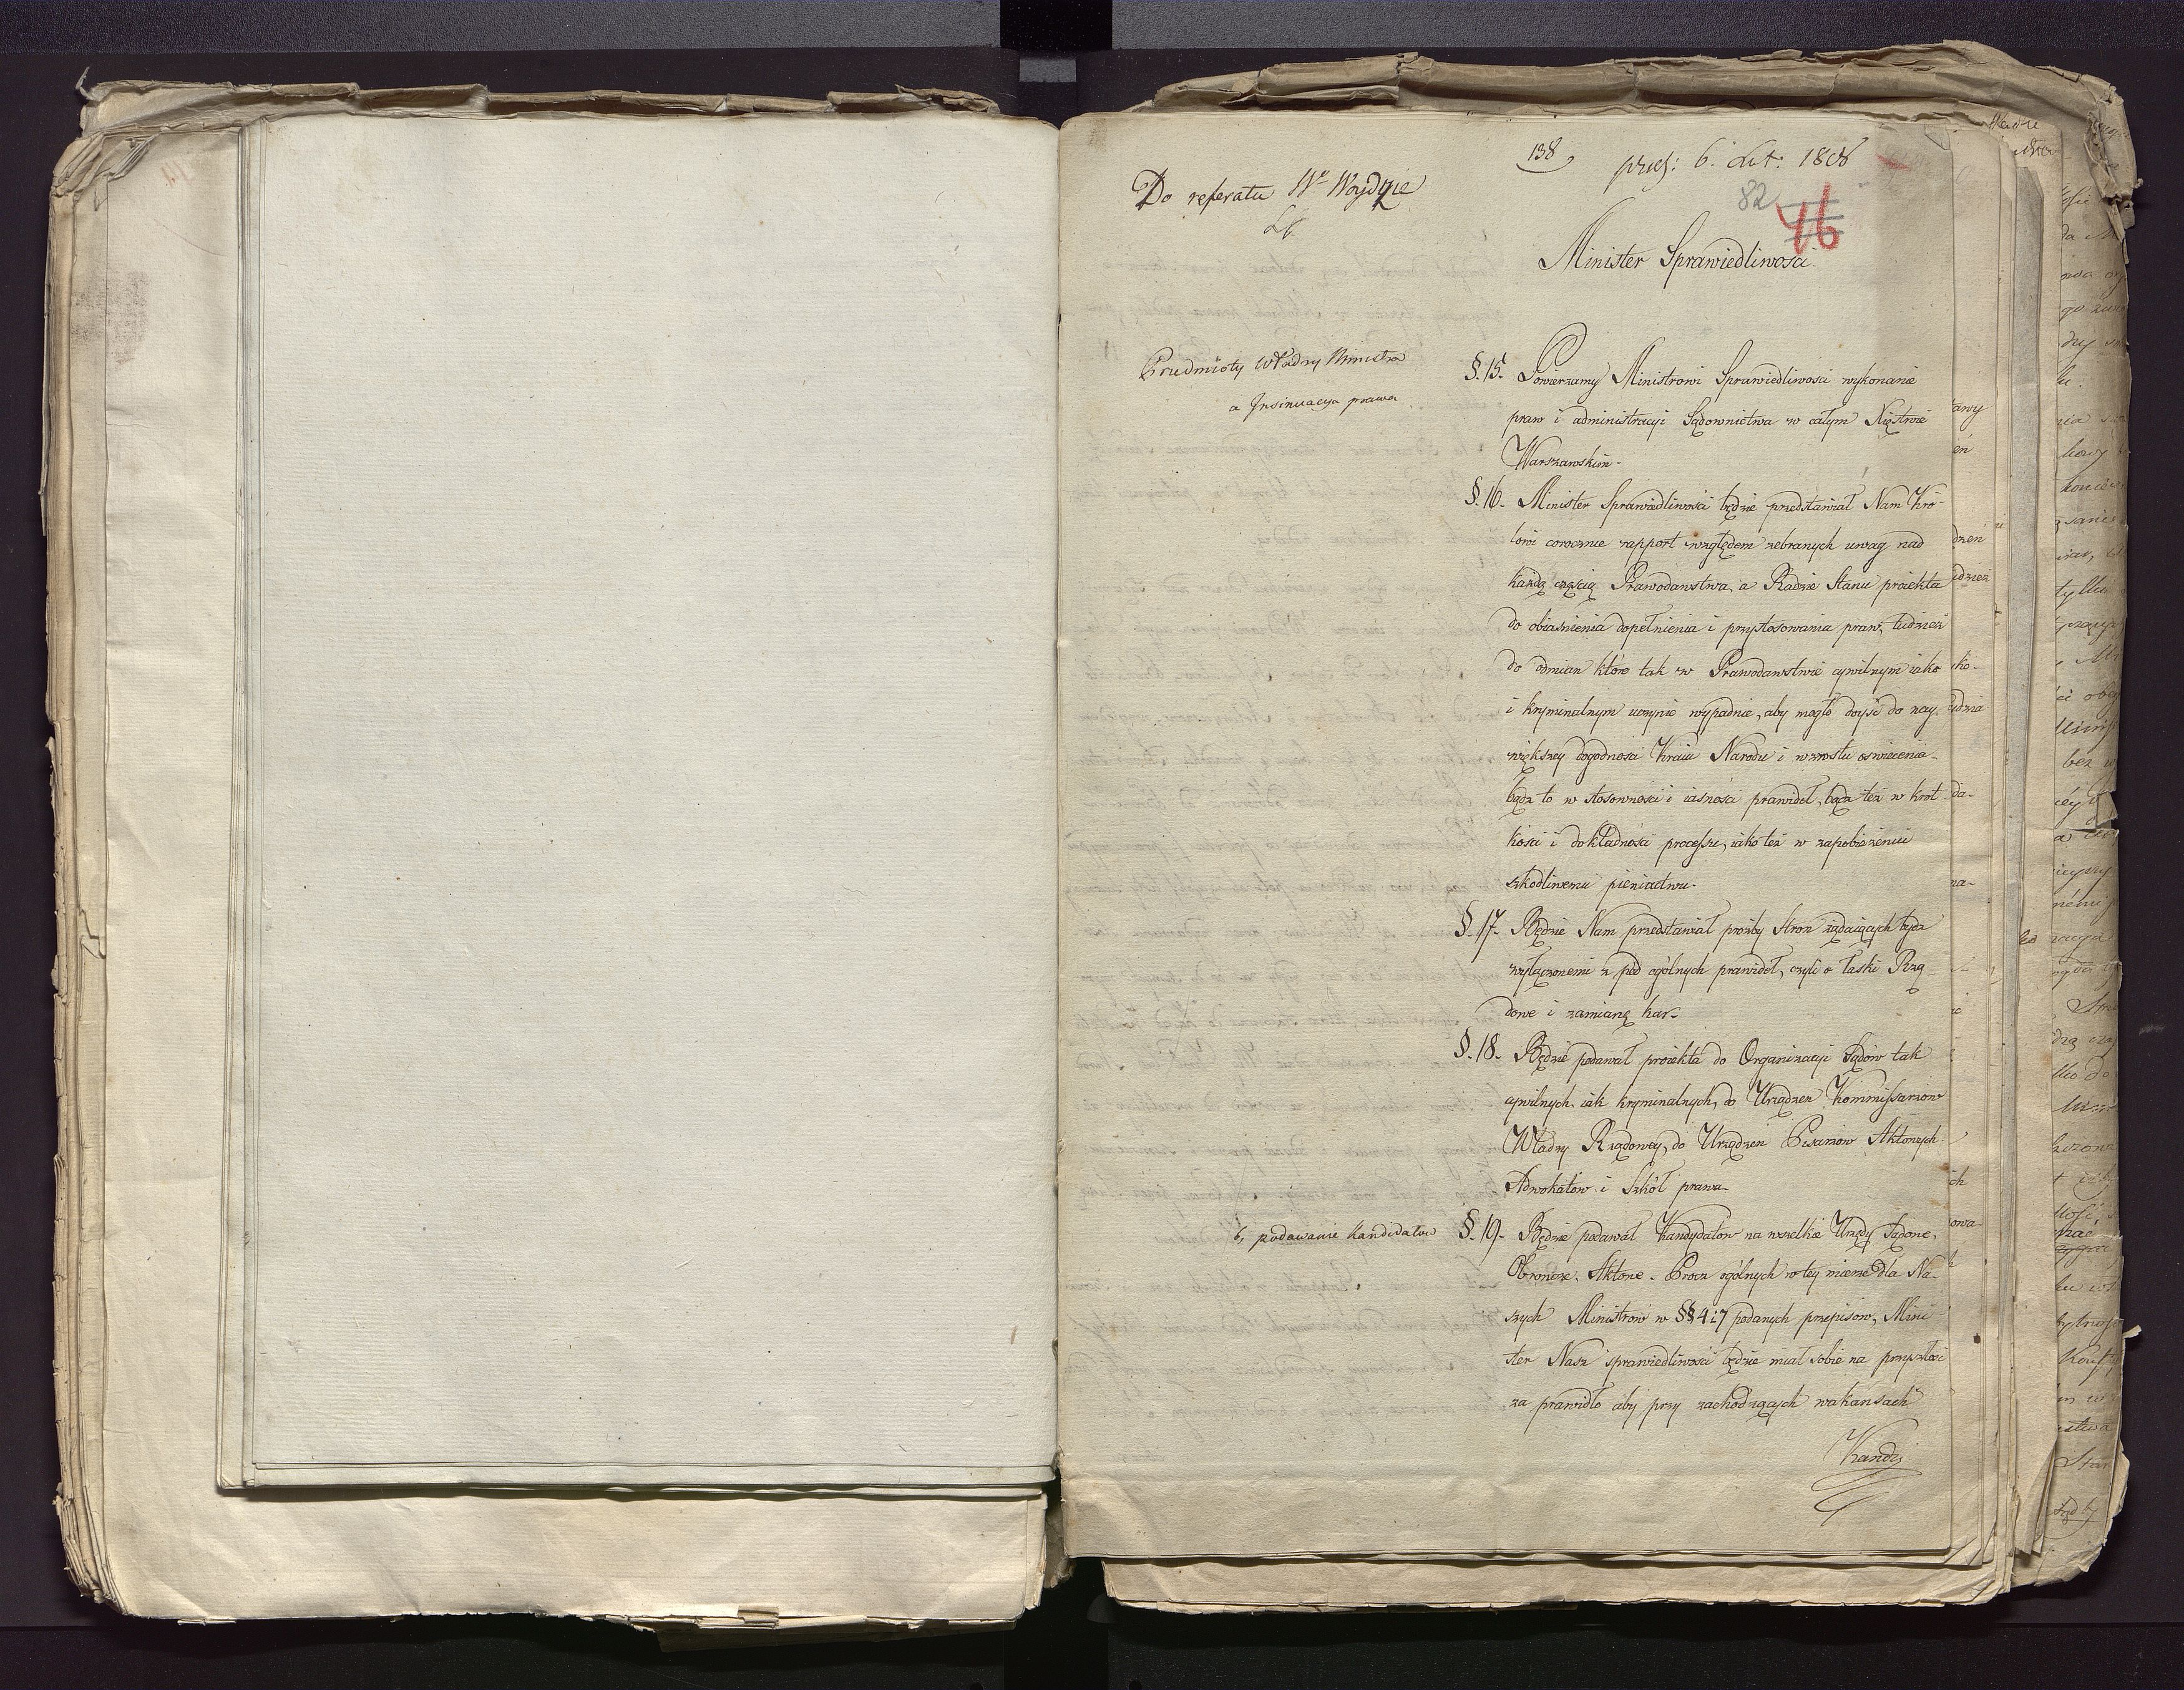 138
pręs: 6. Lut: 1808
Do referatu Wo Woydzie
Lb
82
46
Minister Sprawiedliwosci
Przedmioty Władzy Ministra
a Insinuacya prawa
§. 15. Powierzamy Ministrowi Sprawiedliwosci wykonanie
praw i administracyi Sądownictwa w całym Xięstwie
Warszawskim.
§. 16. Minister Sprawiedliwosci będzie przedstawiał Nam Kro-
lowi corocznie rapport względem zebranych uwag nad
każdą częscią Prawodawstwa, a Radzie Stanu proiekta
do obiasnienia dopełnienia i przystosowania praw, tudzież
do odmian które tak w Prawodawstwie cywilnym iako
i kryminalnym uczynić wypadnie, aby mogło doyść do nay-
większey dogodnosci Kraiu Narodu i wzrostu oswiecenia
bądz to w stosownosci i iasności prawideł, bądz też w krót
kosci i dokładnosci processu, iako też w zapobieżeniu
szkodliwemu pieniactwu.
§. 17. Będzie Nam przedstawiał prozby stron żądaiących bydz
wyłączonemi z pod ogólnych prawideł, czyli o łaski Rzą-
dowe i zamianę kar.
§. 18. Będzie podawał proiekta do Organizacyi Sądów tak
cywilnych iak kryminalnych, do Urządzeń Kommissarzow
Władzy Rządowey, do Urządzeń Pisarzow Aktowych
Adwokatow i Szkół prawa.
b, podawanie Kandidatow
§. 19. Będzie podawał Kandydatow na wszelkie Urzędy Sądowe,
Obroncze, Aktowe. Procz ogólnych w tey mierze dla Na-
szych Ministrow w §§ 4 i 7 podanych przepisow, Mini
ster Nasz sprawiedliwosci będzie miał sobie na przyszłosc
za prawidło aby przy zachodzących wakansach
Kandy